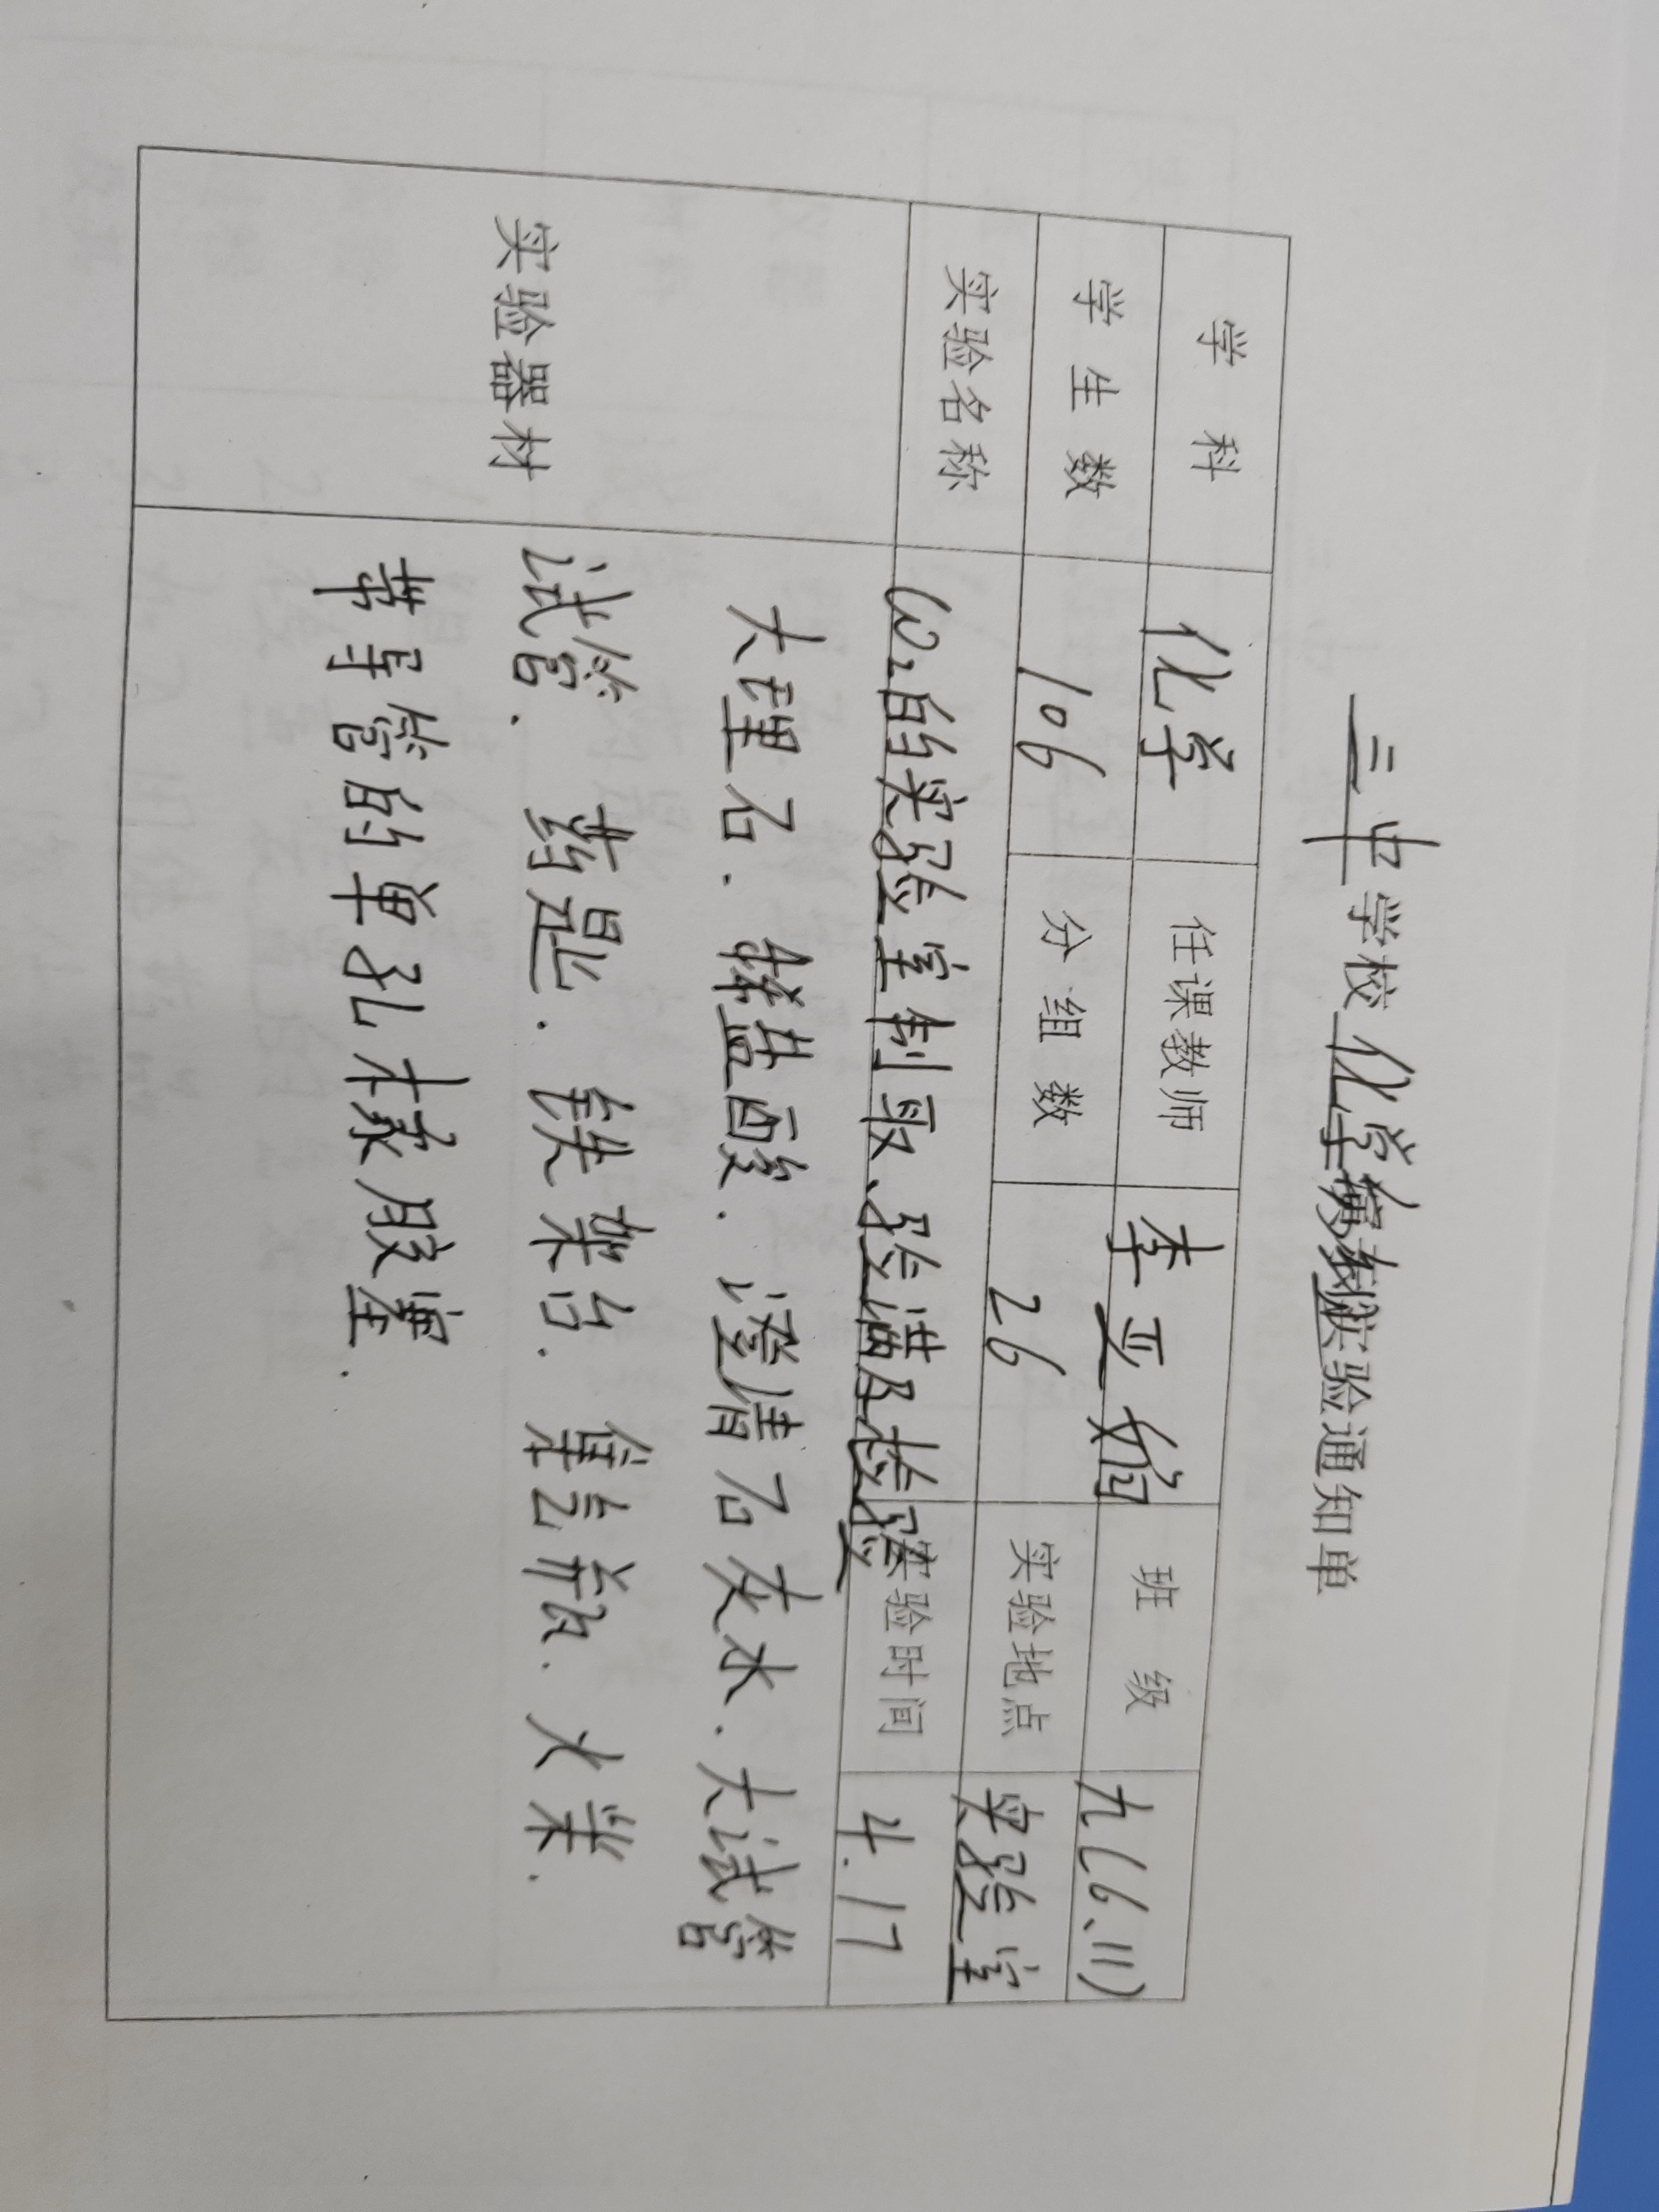 三中学校化学第 实验通知单
学科 化学 任课教师 李亚娟 班级 九(6、11)
学生数 106 分组数 26 实验地点 实验室
实验名称 CO2的实验室制取、验满及检验 实验时间 4.17
实验器材 大理石、稀盐酸、澄清石灰水、大试管
试管、药匙、铁架台、集气瓶、火柴、
带导管的单孔橡胶塞、